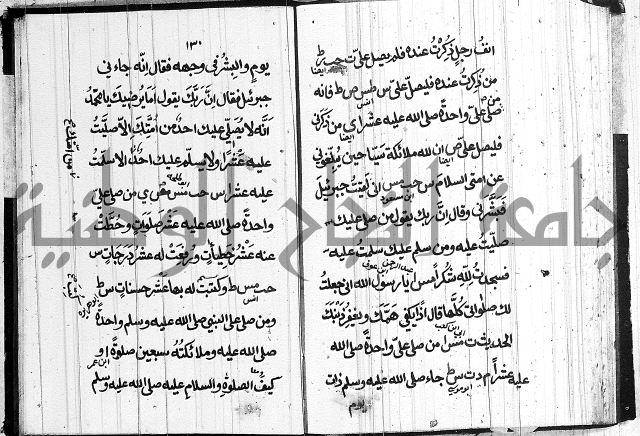 انف رجل ذكرت عنده فلم يصل علي ت حب ر ط
من ذكرت عنده فليصل علي س طس ص ط فانه
من صلى علي واحدة صلى الله عليه عشرا ي من ذكرني
فليصل علي ص ان لله ملائكة سياحين يبلغوني
عن امتي السلام س حب مس اني لقيت جبرئيل
فبشرني وقال ان ربك يقول من صلى عليك
صليت عليه ومن سلم عليك سلمت عليه
فسجدت لله شكرا مس يا رسول الله اني جعلت
لك صلواتي كلها قال اذا يكفى همك ويغفر ذنبك
الحديث ت مس من صلى علي واحدة صلى الله
عليه عشرا م د ت س ط جاء صلى الله عليه وسلم ذات
يوم
١٣٠
يوم والبشر في وجهه فقال انه جاءني
جبرئيل فقال ان ربك يقول اما يرضيك يا محمد
انه لا يصلي عليك احد من امتك الا صليت
عليه عشرا ولا يسلم عليك احد الا سلمت
عليه عشرا س حب مس مص ي من صلى علي
واحدة صلى الله عليه عشر صلوات وحطت
عنه عشر خطيات ورفعت له عشر درجات س
حب مس ط وكتبت له بها عشر حسنات س ط
ومن صلى على النبي صلى الله عليه وسلم واحدة
صلى الله عليه وملائكته سبعين صلوة ا و
كيف الصلوة والسلام عليه صلى الله عليه وسلم
جامعة النجاح الوطنية